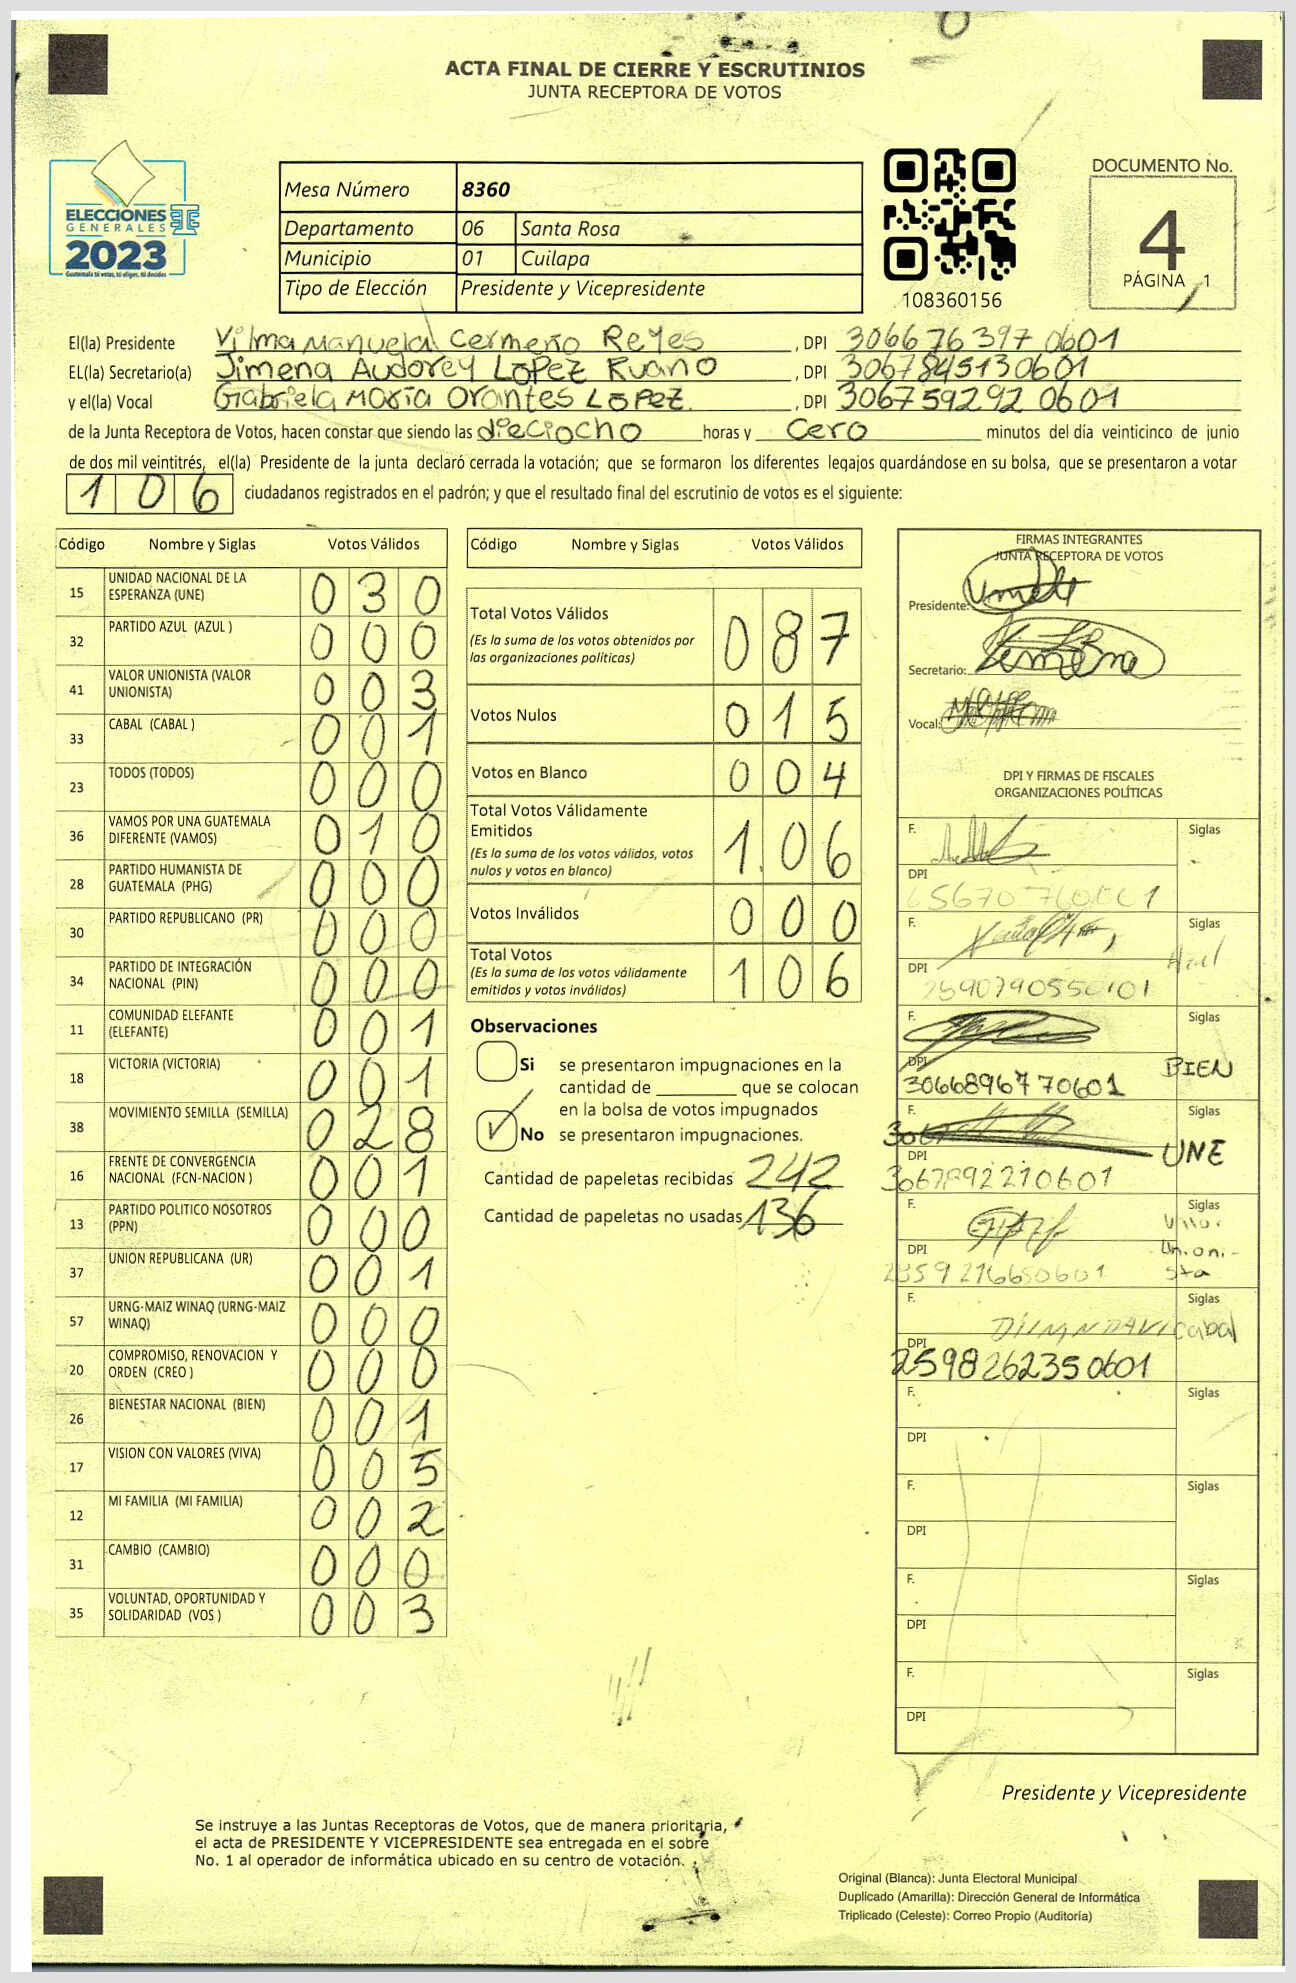 ACTA FINAL DE CIERRE Y ESCRUTINIOS
JUNTA RECEPTORA DE VOTOS
ELECCIONES
GENERALES
2023
Guatemala tú votas, tú eliges, tú decides
Mesa Número 8360
Departamento 06 Santa Rosa
Municipio 01 Cuilapa
Tipo de Elección Presidente y Vicepresidente
108360156
DOCUMENTO No.
4
PÁGINA 1
El(la) Presidente Vilma Manuela Cermeño Reyes, DPI 3066763970601
EL(la) Secretario(a) Jimena Audorey Lopez Ruano, DPI 3067845130601
y el(la) Vocal Gabriela María Orantes Lopez, DPI 3067592920601
de la Junta Receptora de Votos, hacen constar que siendo las dieciocho horas y cero minutos del día veinticinco de junio
de dos mil veintitrés, el(la) Presidente de la junta declaró cerrada la votación; que se formaron los diferentes legajos guardándose en su bolsa, que se presentaron a votar
106 ciudadanos registrados en el padrón; y que el resultado final del escrutinio de votos es el siguiente:
Código Nombre y Siglas Votos Válidos
15 UNIDAD NACIONAL DE LA ESPERANZA (UNE) 030
32 PARTIDO AZUL (AZUL ) 000
41 VALOR UNIONISTA (VALOR UNIONISTA) 003
33 CABAL (CABAL ) 001
23 TODOS (TODOS) 000
36 VAMOS POR UNA GUATEMALA DIFERENTE (VAMOS) 010
28 PARTIDO HUMANISTA DE GUATEMALA (PHG) 000
30 PARTIDO REPUBLICANO (PR) 000
34 PARTIDO DE INTEGRACIÓN NACIONAL (PIN) 000
11 COMUNIDAD ELEFANTE (ELEFANTE) 001
18 VICTORIA (VICTORIA) 001
38 MOVIMIENTO SEMILLA (SEMILLA) 028
16 FRENTE DE CONVERGENCIA NACIONAL (FCN-NACION ) 001
13 PARTIDO POLITICO NOSOTROS (PPN) 000
37 UNION REPUBLICANA (UR) 001
57 URNG-MAIZ WINAQ (URNG-MAIZ WINAQ) 000
20 COMPROMISO, RENOVACION Y ORDEN (CREO ) 000
26 BIENESTAR NACIONAL (BIEN) 001
17 VISION CON VALORES (VIVA) 005
12 MI FAMILIA (MI FAMILIA) 002
31 CAMBIO (CAMBIO) 000
35 VOLUNTAD, OPORTUNIDAD Y SOLIDARIDAD (VOS ) 003
Código Nombre y Siglas Votos Válidos
Total Votos Válidos 087
(Es la suma de los votos obtenidos por
las organizaciones políticas)
Votos Nulos 015
Votos en Blanco 004
Total Votos Válidamente
Emitidos 1.06
(Es la suma de los votos válidos, votos
nulos y votos en blanco)
Votos Inválidos 000
Total Votos 106
(Es la suma de los votos válidamente
emitidos y votos inválidos)
Observaciones
Si se presentaron impugnaciones en la
cantidad de ________ que se colocan
en la bolsa de votos impugnados
No se presentaron impugnaciones.
Cantidad de papeletas recibidas 242
Cantidad de papeletas no usadas 136
FIRMAS INTEGRANTES
JUNTA RECEPTORA DE VOTOS
Presidente:
Secretario:
Vocal:
DPI Y FIRMAS DE FISCALES
ORGANIZACIONES POLÍTICAS
F. Siglas
DPI
F. Siglas
Azul
DPI
2590790550101
F. Siglas
DPI BIEN
3066896770601
F. Siglas
UNE
DPI
3067892210601
F. Siglas
Valor
Unioni-
sta
DPI
F. Siglas
Cabal
DPI
2598262350601
F. Siglas
DPI
F. Siglas
DPI
F. Siglas
DPI
F. Siglas
DPI
Presidente y Vicepresidente
Se instruye a las Juntas Receptoras de Votos, que de manera prioritaria,
el acta de PRESIDENTE Y VICEPRESIDENTE sea entregada en el sobre
No. 1 al operador de informática ubicado en su centro de votación.
Original (Blanca): Junta Electoral Municipal
Duplicado (Amarilla): Dirección General de Informática
Triplicado (Celeste): Correo Propio (Auditoría)